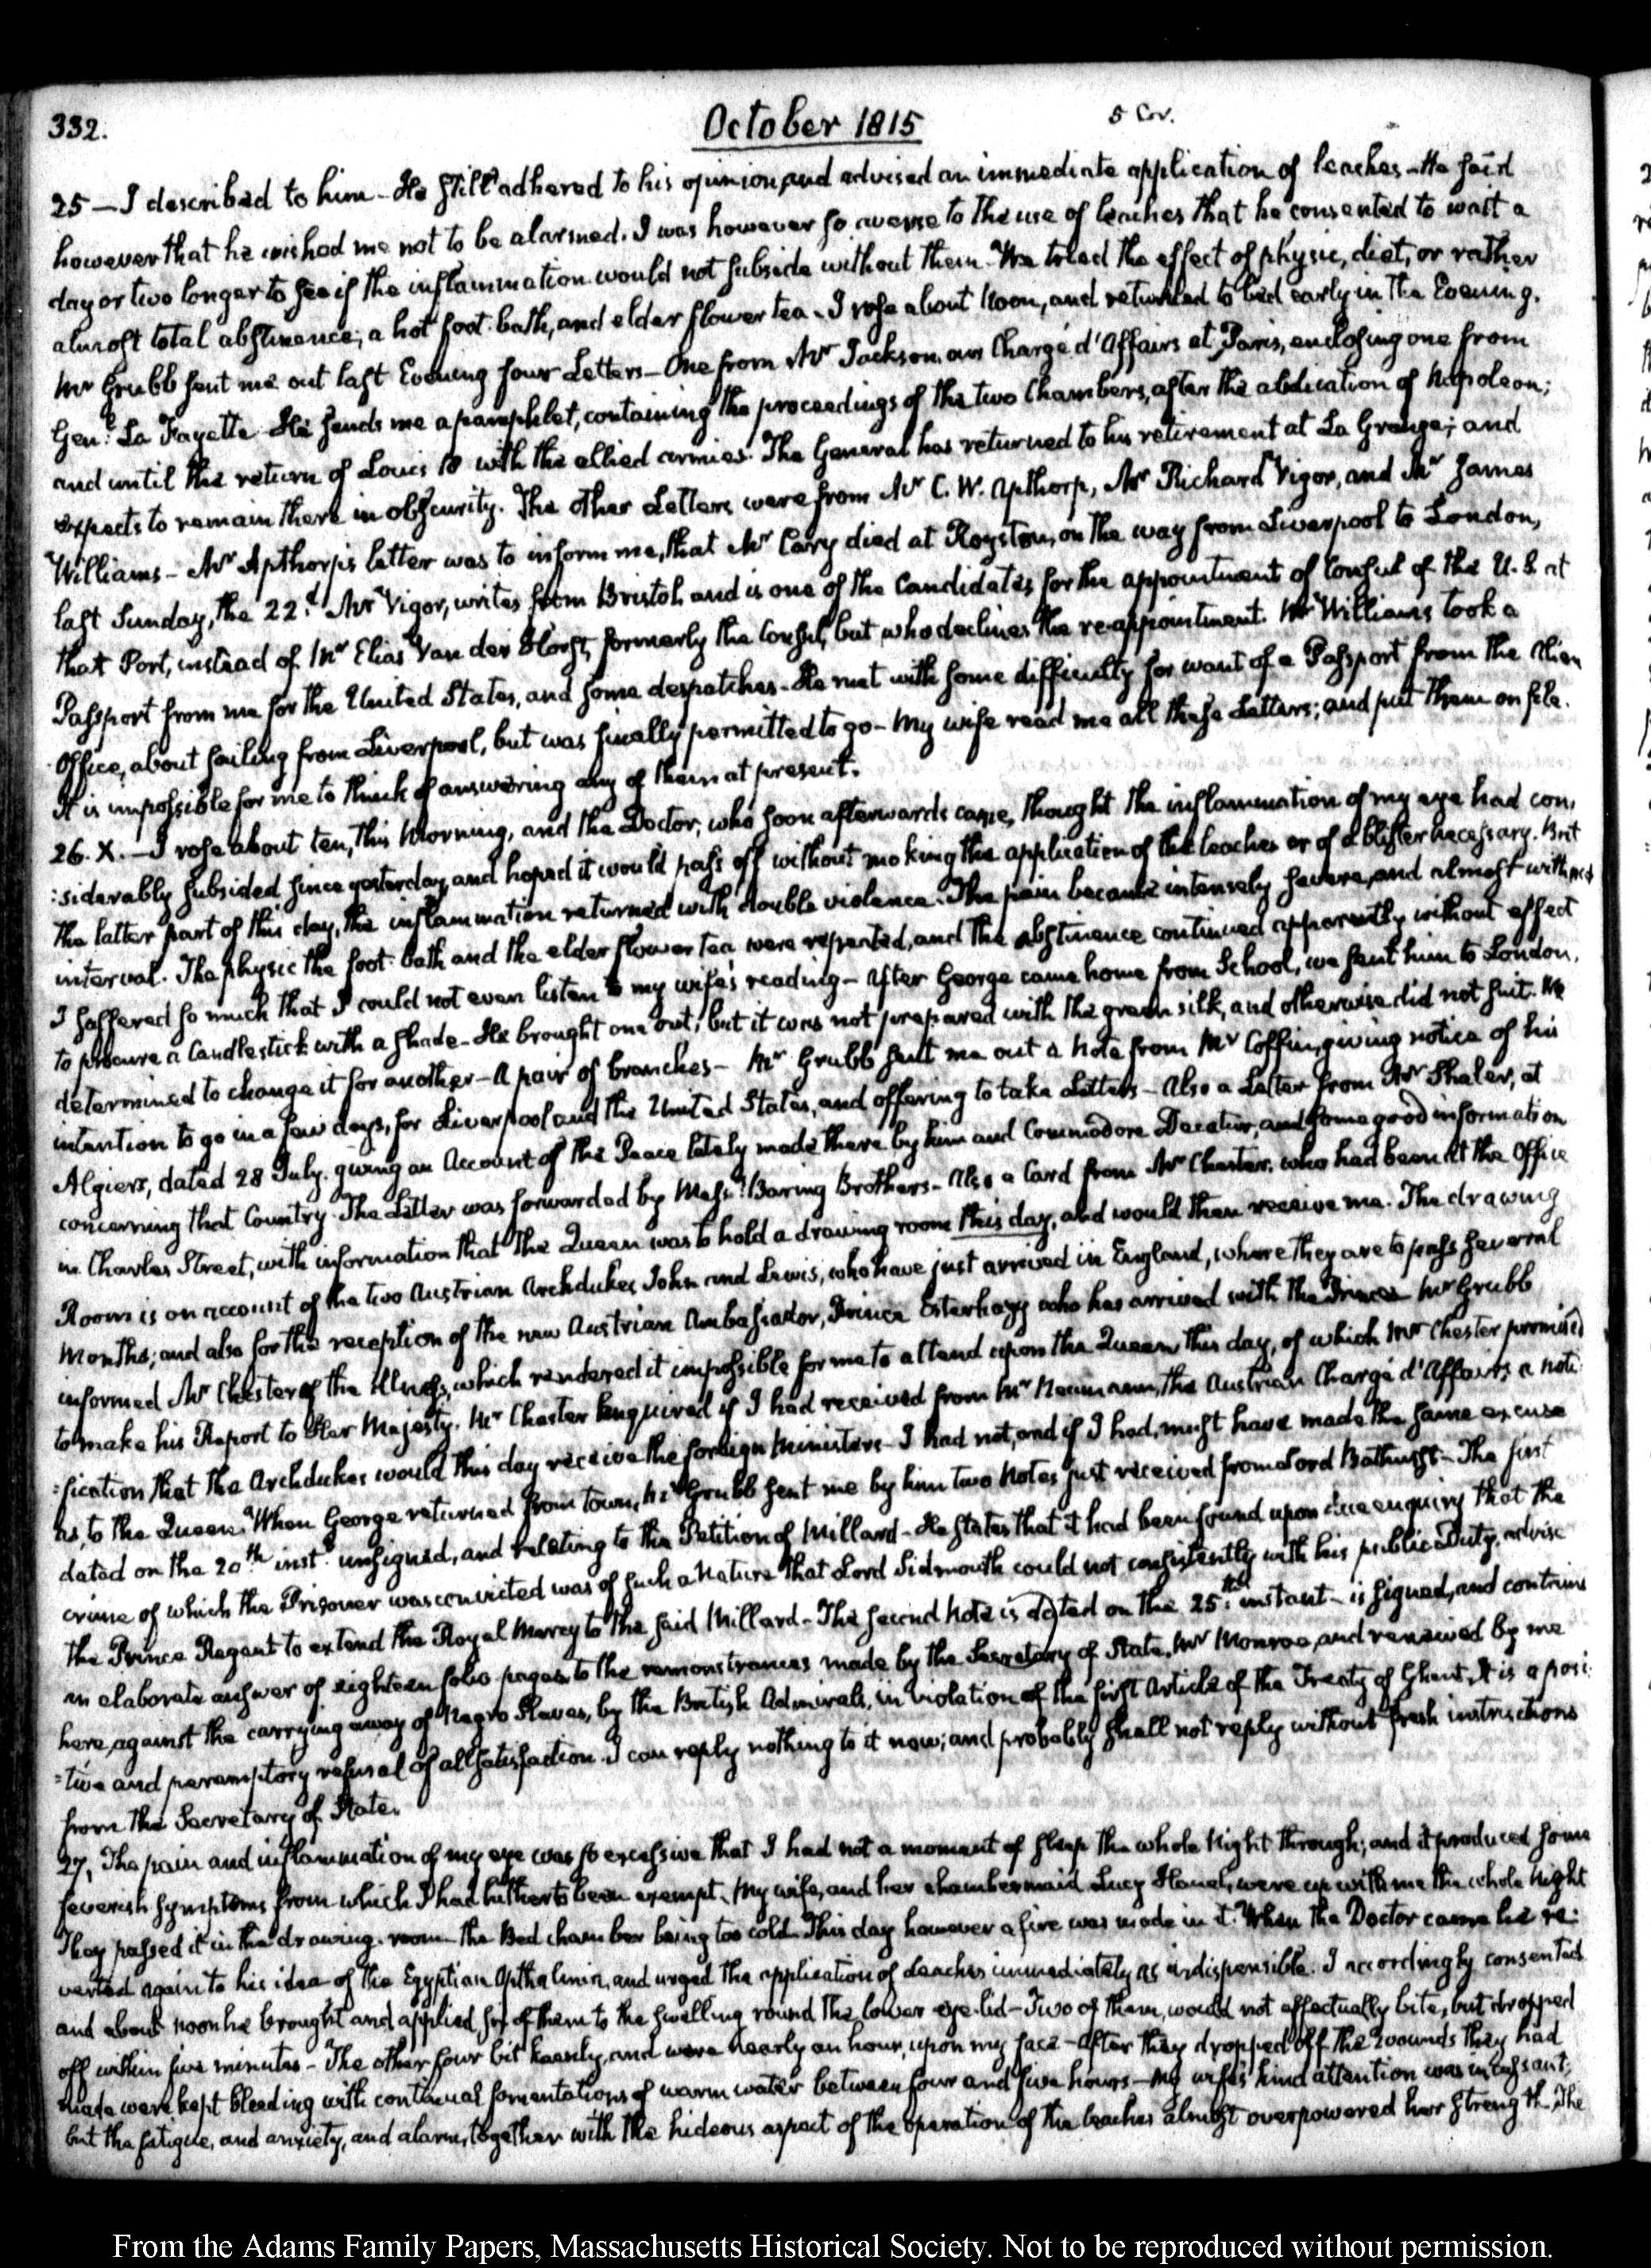 332.
October 1815
5 Cov.
25 — I described to him - He still adhered to his opinion and advised an immediate application of leaches - He said
however that he wished me not to be alarmed. I was however so averse to the use of leaches that he consented to wait a
day or two longer to see if the inflammation would not subside without them - We tried the effect of physic, diet, or rather
almost total abstinence; a hot foot-bath, and elder flower tea - I rose about Noon, and returned to bed early in the Evening.
Mr Grubb sent me out last Evening four Letters - One from Mr Jackson, our Chargé d'Affairs at Paris, enclosing one from
Genl. La Fayette He sends me a pamphlet, containing the proceedings of the two Chambers, after the abdication of Napoleon;
and until the return of Louis 18 with the allied armies. The General has returned to his retirement at La Grange; and
expects to remain there in obscurity. The other Letters were from Mr C. W. Apthorp, Mr Richard Vigor, and Mr James
Williams - Mr Apthorp's letter was to inform me, that Mr Cary died at Royston, on the way from Liverpool to London,
last Sunday, the 22d. Mr Vigor, writes from Bristol, and is one of the Candidates for the appointment of Consul of the U. S. at
that Port, instead of Mr Elias Van der Horst, formerly the Consul, but who declines the re-appointment. Mr Williams took a
Passport from me for the United States, and some despatches - He met with some difficulty for want of a Passport from the Alien
Office, about sailing from Liverpool, but was finally permitted to go - My wife read me all these Letters; and put them on file.
It is impossible for me to think of answering any of them at present.
26. X. - I rose about ten, this Morning, and the Doctor, who soon afterwards came, thought the inflammation of my eye had con,
:siderably subsided since yesterday, and hoped it would pass off without making the application of the leaches or of a blister necessary. But
the latter part of this day, the inflammation returned with double violence. The pain became intensely severe, and almost without
interval. The physic the foot-bath and the elder flower tea, were repeated, and the abstinence continued apparently without effect
I suffered so much that I could not even listen to my wife's reading - After George came home from School, we sent him to London,
to procure a Candlestick with a shade - He brought one out, but it was not prepared with the green silk, and otherwise did not suit. We
determined to change it for another - A pair of branches - Mr Grubb sent me out a Note from Mr Coffin, giving notice of his
intention to go in a few days, for Liverpool and the United States, and offering to take Letters - Also a Letter from Mr Shaler, at
Algiers, dated 28 July. giving an Account of the Peace lately made there by him and Commodore Decatur, and some good information
concerning that Country. The Letter was forwarded by Messrs. Baring Brothers - Also a Card from Mr Chester, who had been at the Office
in Charles Street, with information that the Queen was to hold a drawing room this day, and would then receive me. The drawing
Room is on account of the two Austrian Archdukes John and Lewis, who have just arrived in England, where they are to pass several
Months; and also for the reception of the new Austrian Ambassador, Prince Esterhazy who has arrived with the Princes Mr Grubb
informed Mr Chester of the illness, which rendered it impossible for me to attend upon the Queen this day, of which Mr Chester promised
to make his Report to Her Majesty. Mr Chester enquired if I had received from Mr Neumann, the Austrian Chargé d'Affairs a noti:
:fication that the Archdukes would this day receive the foreign Ministers - I had not, and if I had, must have made the same excuse
as, to the Queen. When George returned from town, Mr Grubb sent me by him two Notes just received from Lord Bathurst - The first
dated on the 20th inst. unsigned, and relating to the Petition of Millard - He states that it had been found upon due enquiry that the
crime of which the Prisoner was convicted was of such a Nature that Lord Sidmouth could not consistently with his public Duty, advise
the Prince Regent to extend the Royal Mercy to the said Millard - The second Note is dated on the 25th. instant - is signed, and contains
an elaborate answer of eighteen folio pages to the remonstrances made by the Secretary of State, Mr Monroe, and renewed by me
here, against the carrying away of Negro Slaves, by the British Admirals, in violation of the first Article of the Treaty of Ghent. It is a posi:
:tive and peremptory refusal of all satisfaction. I can reply nothing to it now; and probably shall not reply without fresh instructions
from the Secretary of State.
27. The pain and inflammation of my eye was so excessive that I had not a moment of sleep the whole Night through; and it produced some
feverish symptoms from which I had hitherto been exempt. My wife, and her chambermaid Lucy were up with me the whole Night
They passed it in the drawing-room the Bed chamber being too cold. This day however a fire was made in it. When the Doctor came he re:
verted again to his idea of the Egyptian Opthalmia, and urged the application of Leaches immediately as indispensible. I accordingly consented
and about noon he brought and applied six of them to the swelling round the lower eye-lid - Two of them, would not effectually bite, but dropped
off within five minutes - The other four bit keenly, and were nearly an hour, upon my face - After they dropped off the wounds they had
made were kept bleeding with continual fomentations of warm water between four and five hours - My wife's kind attention was incessant;
but the fatigue, and anxiety, and alarm, together with the hideous aspect of the operation of the leaches almost overpowered her strength. The
From the Adams Family Papers, Massachusetts Historical Society. Not to be reproduced without permission.